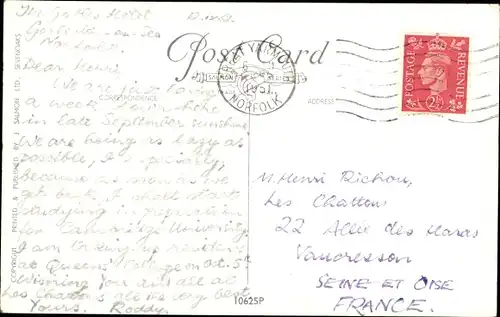 Hotel
Gorleston-on-Sea
Norfolk
Dear Henri,
We are just having
a week
in late September sunshine.
We are being as lazy as
possible, I especially,
because as soon as we
get back I shall start
studying in preparation
for Cambridge University.
I am taking up residence
at Queens' College on Oct. 5th
Wishing you and all at
Les Chattons the very best
Yours, Roddy.
Post Card
CORRESPONDENCE
ADDRESS
GREAT YARMOUTH
1951
NORFOLK
POSTAGE REVENUE
2½D
M. Henri Dichou,
Les Chattons
22 Allée des Haras
Vaucresson
SEINE ET OISE
FRANCE.
COPYRIGHT PRINTED & PUBLISHED BY J. SALMON LTD., SEVENOAKS
10625P